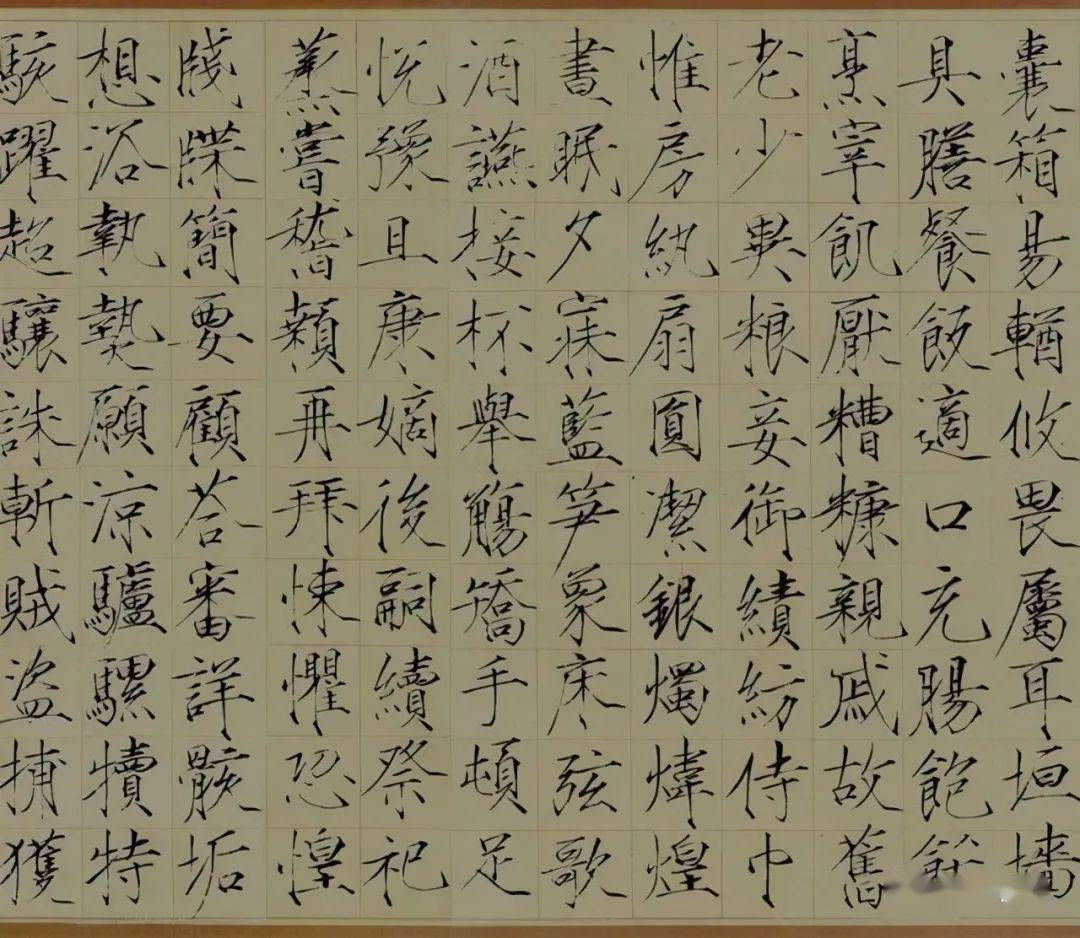 囊箱易輶攸畏屬耳垣墻
具膳餐飯適口充腸飽飫
烹宰飢厭糟糠親戚故舊
老少異粮妾御績紡侍巾
惟房紈扇圓潔銀燭煒煌
晝眠夕寐藍笋象床弦歌
酒讌接杯舉觴矯手頓足
悅豫且康嫡後嗣續祭祀
蒸嘗稽顙再拜悚懼恐惶
牋牒簡要顧荅審詳骸垢
想浴執熱願涼驢騾犢特
駭躍超驤誅斬賊盜捕獲